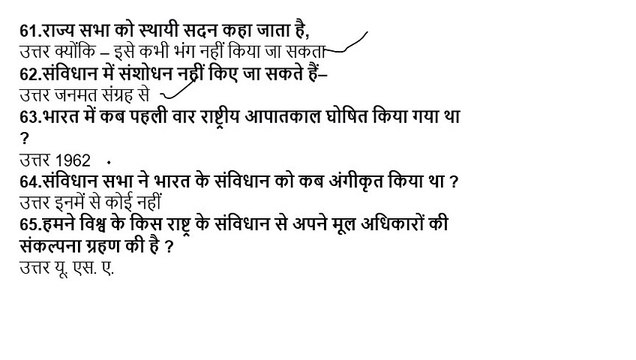 61.राज्य सभा को स्थायी सदन कहा जाता है,
उत्तर क्योंकि – इसे कभी भंग नहीं किया जा सकता
62.संविधान में संशोधन नहीं किए जा सकते हैं–
उत्तर जनमत संग्रह से
63.भारत में कब पहली वार राष्ट्रीय आपातकाल घोषित किया गया था
?
उत्तर 1962
64.संविधान सभा ने भारत के संविधान को कब अंगीकृत किया था ?
उत्तर इनमें से कोई नहीं
65.हमने विश्व के किस राष्ट्र के संविधान से अपने मूल अधिकारों की
संकल्पना ग्रहण की है ?
उत्तर यू. एस. ए.